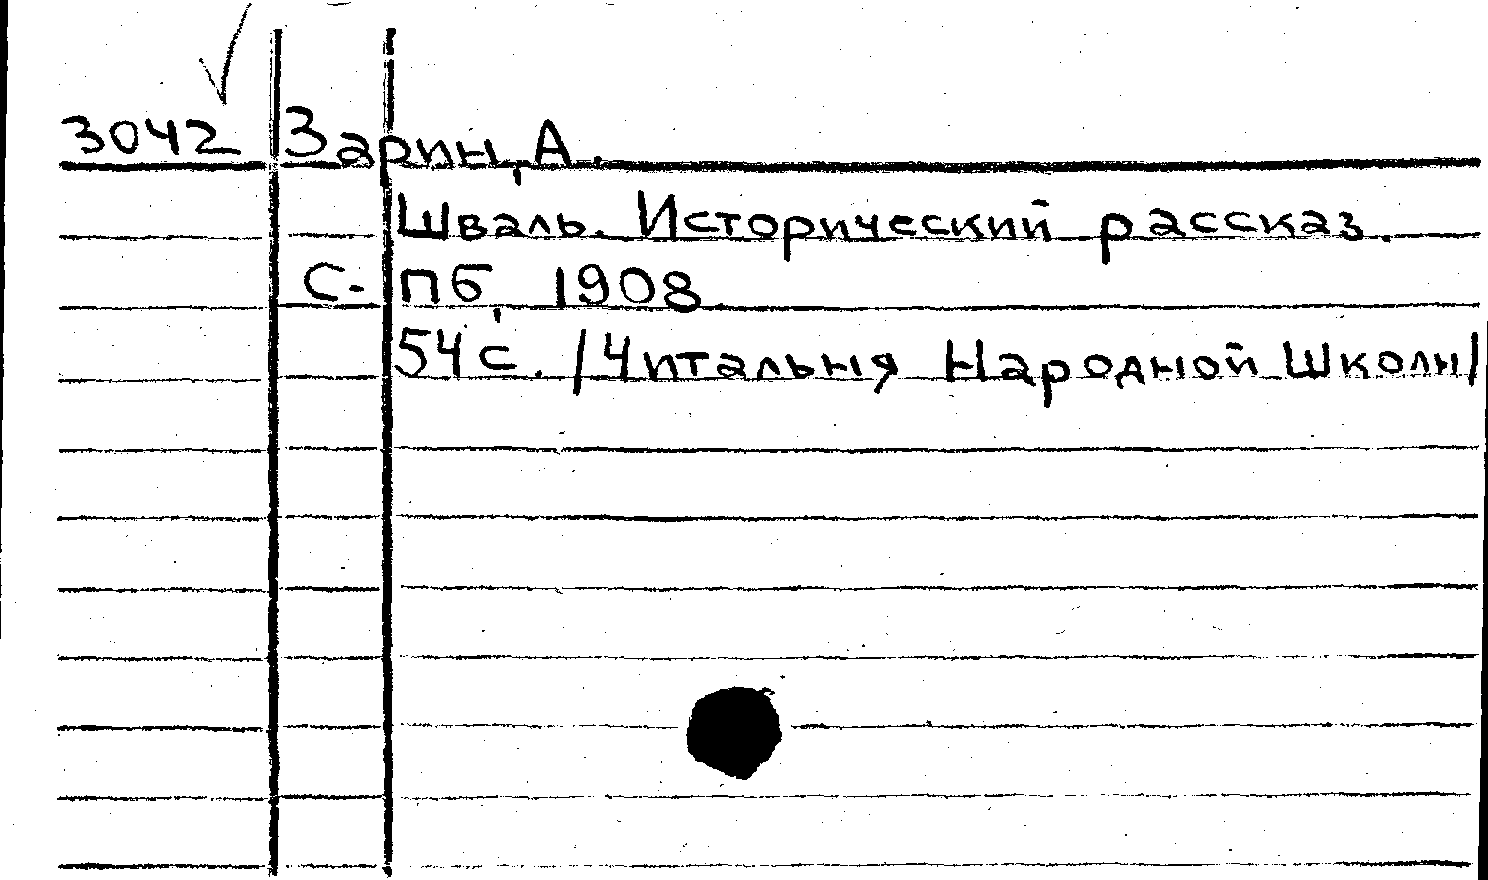 3042 Зарин, А.
Шваль. Исторический рассказ.
С-пб, 1908
54 с. /Читальня Народной Школы/